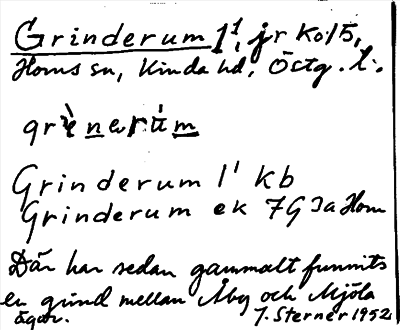 Grinderum 1¹, jr Ko15,
Horns sn, Kinda hd, Östg. l.
grinerum
Grinderum 1¹ kb
Grinderum ek 7G3a Horn
Där har sedan gammalt funnits
en grind mellan Åby och Mjöla
ägor. J. Sterner 1952